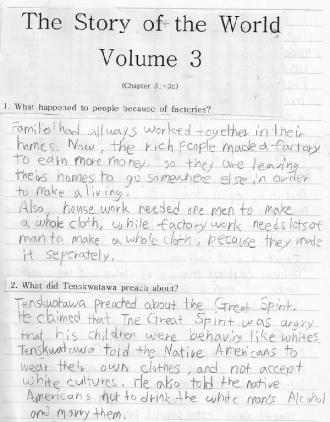 The Story of the World
Volume 3
(Chapter 3 -35)
1. What happened to people because of factories?
Families had allways worked together in their
homes. Now, the rich people made a factory
to earn more money so they are leaving
theirs homes to go somewhere else in order
to make a living.
Also, house work needed one men to make
a whole cloth, while factory work needs lots of
man to make a whole cloth, because they made
it seperately.
2. What did Tenskwatawa preach about?
Tenskwotawa preached about the Great Spirit.
He claimed that The Great Spirit was angry
that his children were behaving like whites.
Tenskwatawa told the Native Americans to
wear their own clothes, and not accept
white cultures. He also told the native
Americans not to drink the white man's Alcohol
and marry them.